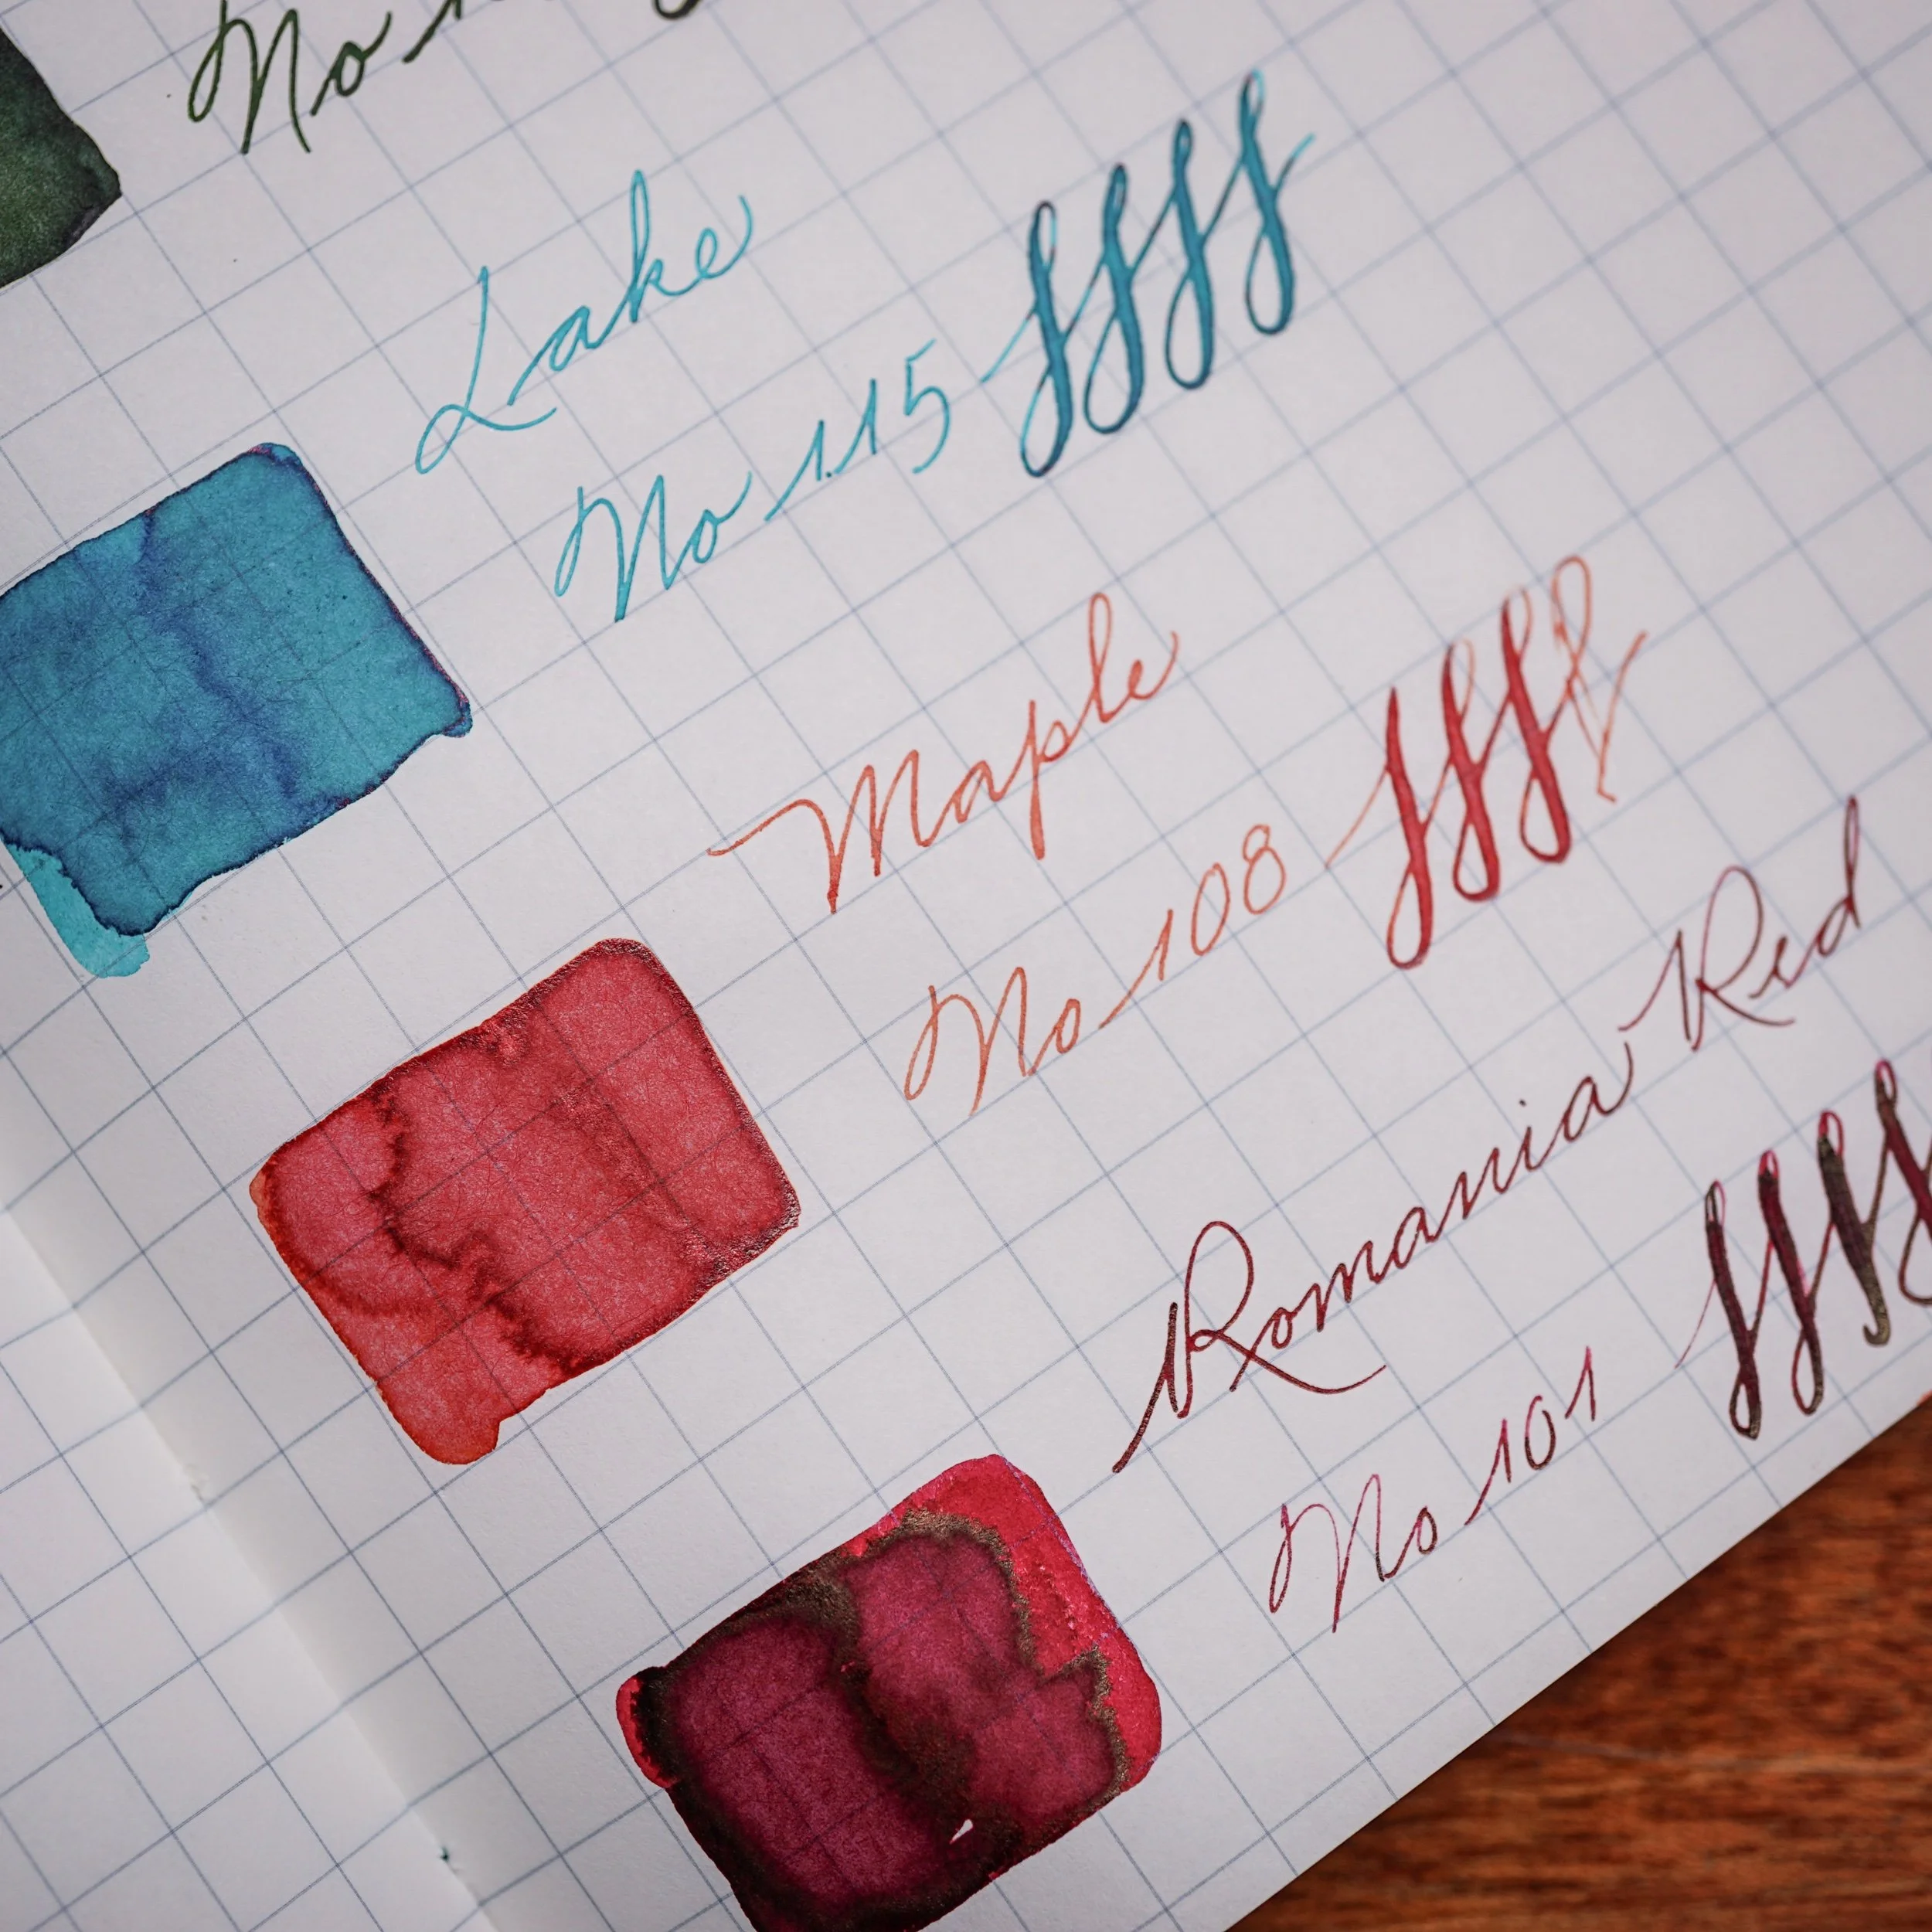 No
Lake
No 115
Maple
No 108
Romania Red
No 101